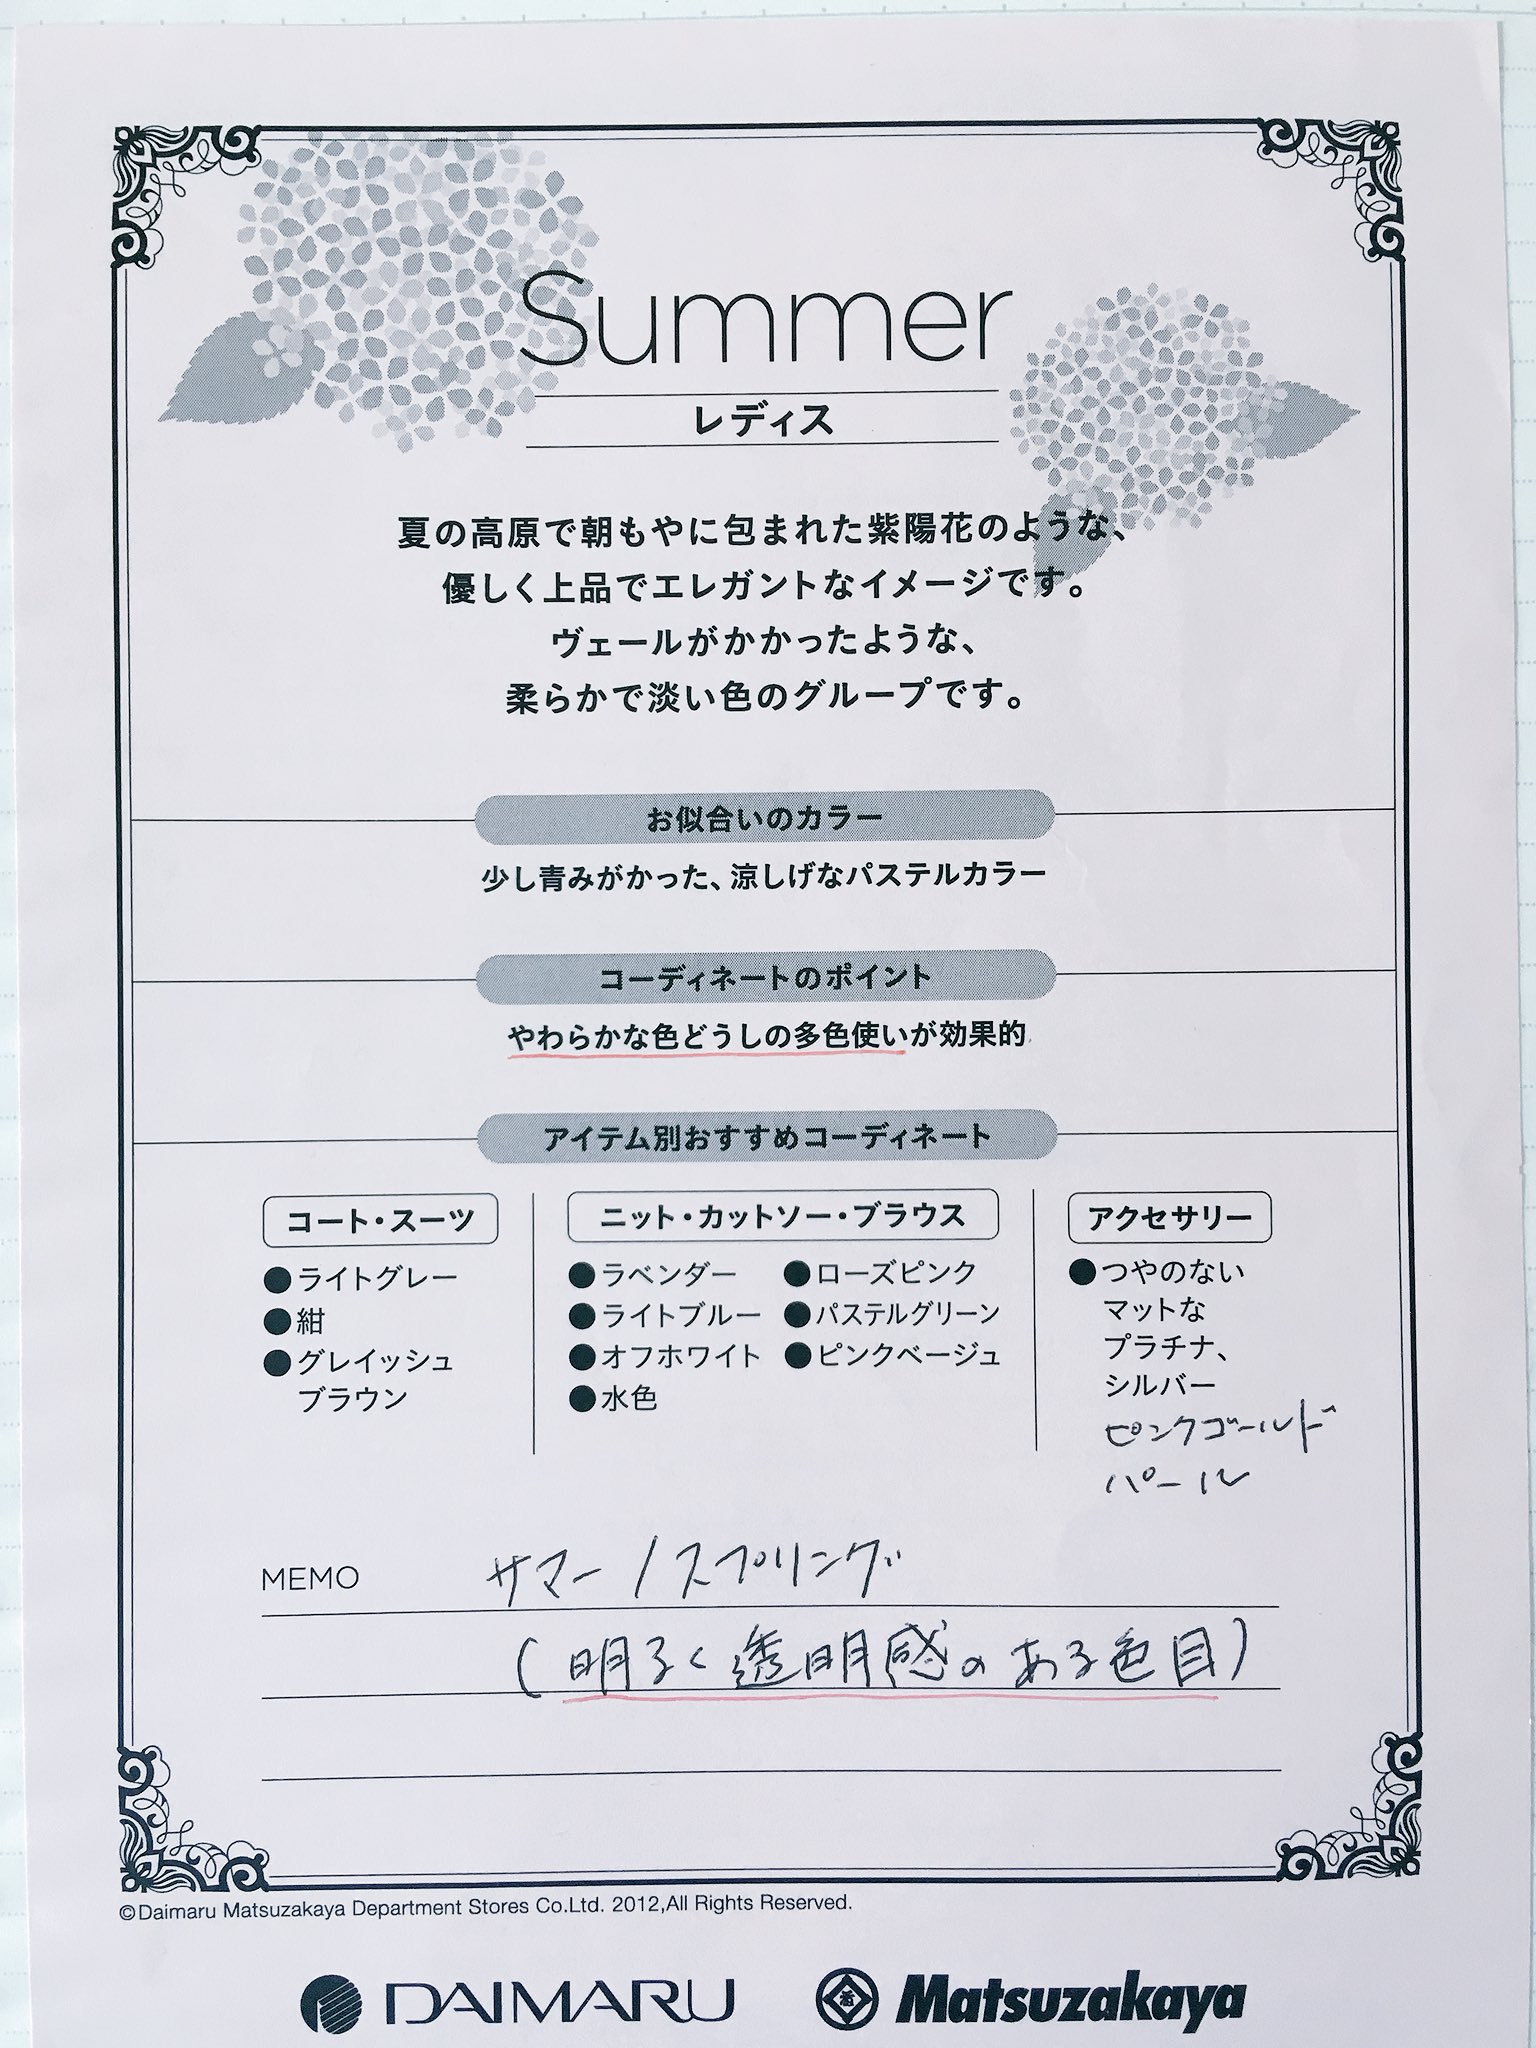 Summer
レディス
夏の高原で朝もやに包まれた紫陽花のような、
優しく上品でエレガントなイメージです。
ヴェールがかかったような、
柔らかで淡い色のグループです。
お似合いのカラー
少し青みがかった、涼しげなパステルカラー
コーディネートのポイント
やわらかな色どうしの多色使いが効果的
アイテム別おすすめコーディネート
コート・スーツ
●ライトグレー
●紺
●グレイッシュ
ブラウン
ニット・カットソー・ブラウス
●ラベンダー ●ローズピンク
●ライトブルー ●パステルグリーン
●オフホワイト ●ピンクベージュ
●水色
アクセサリー
●つやのない
マットな
プラチナ、
シルバー
ピンクゴールド
パール
MEMO サマー/スプリング
(明るく透明感のある色目)
©Daimaru Matsuzakaya Department Stores Co.Ltd. 2012,All Rights Reserved.
DAIMARU Matsuzakaya